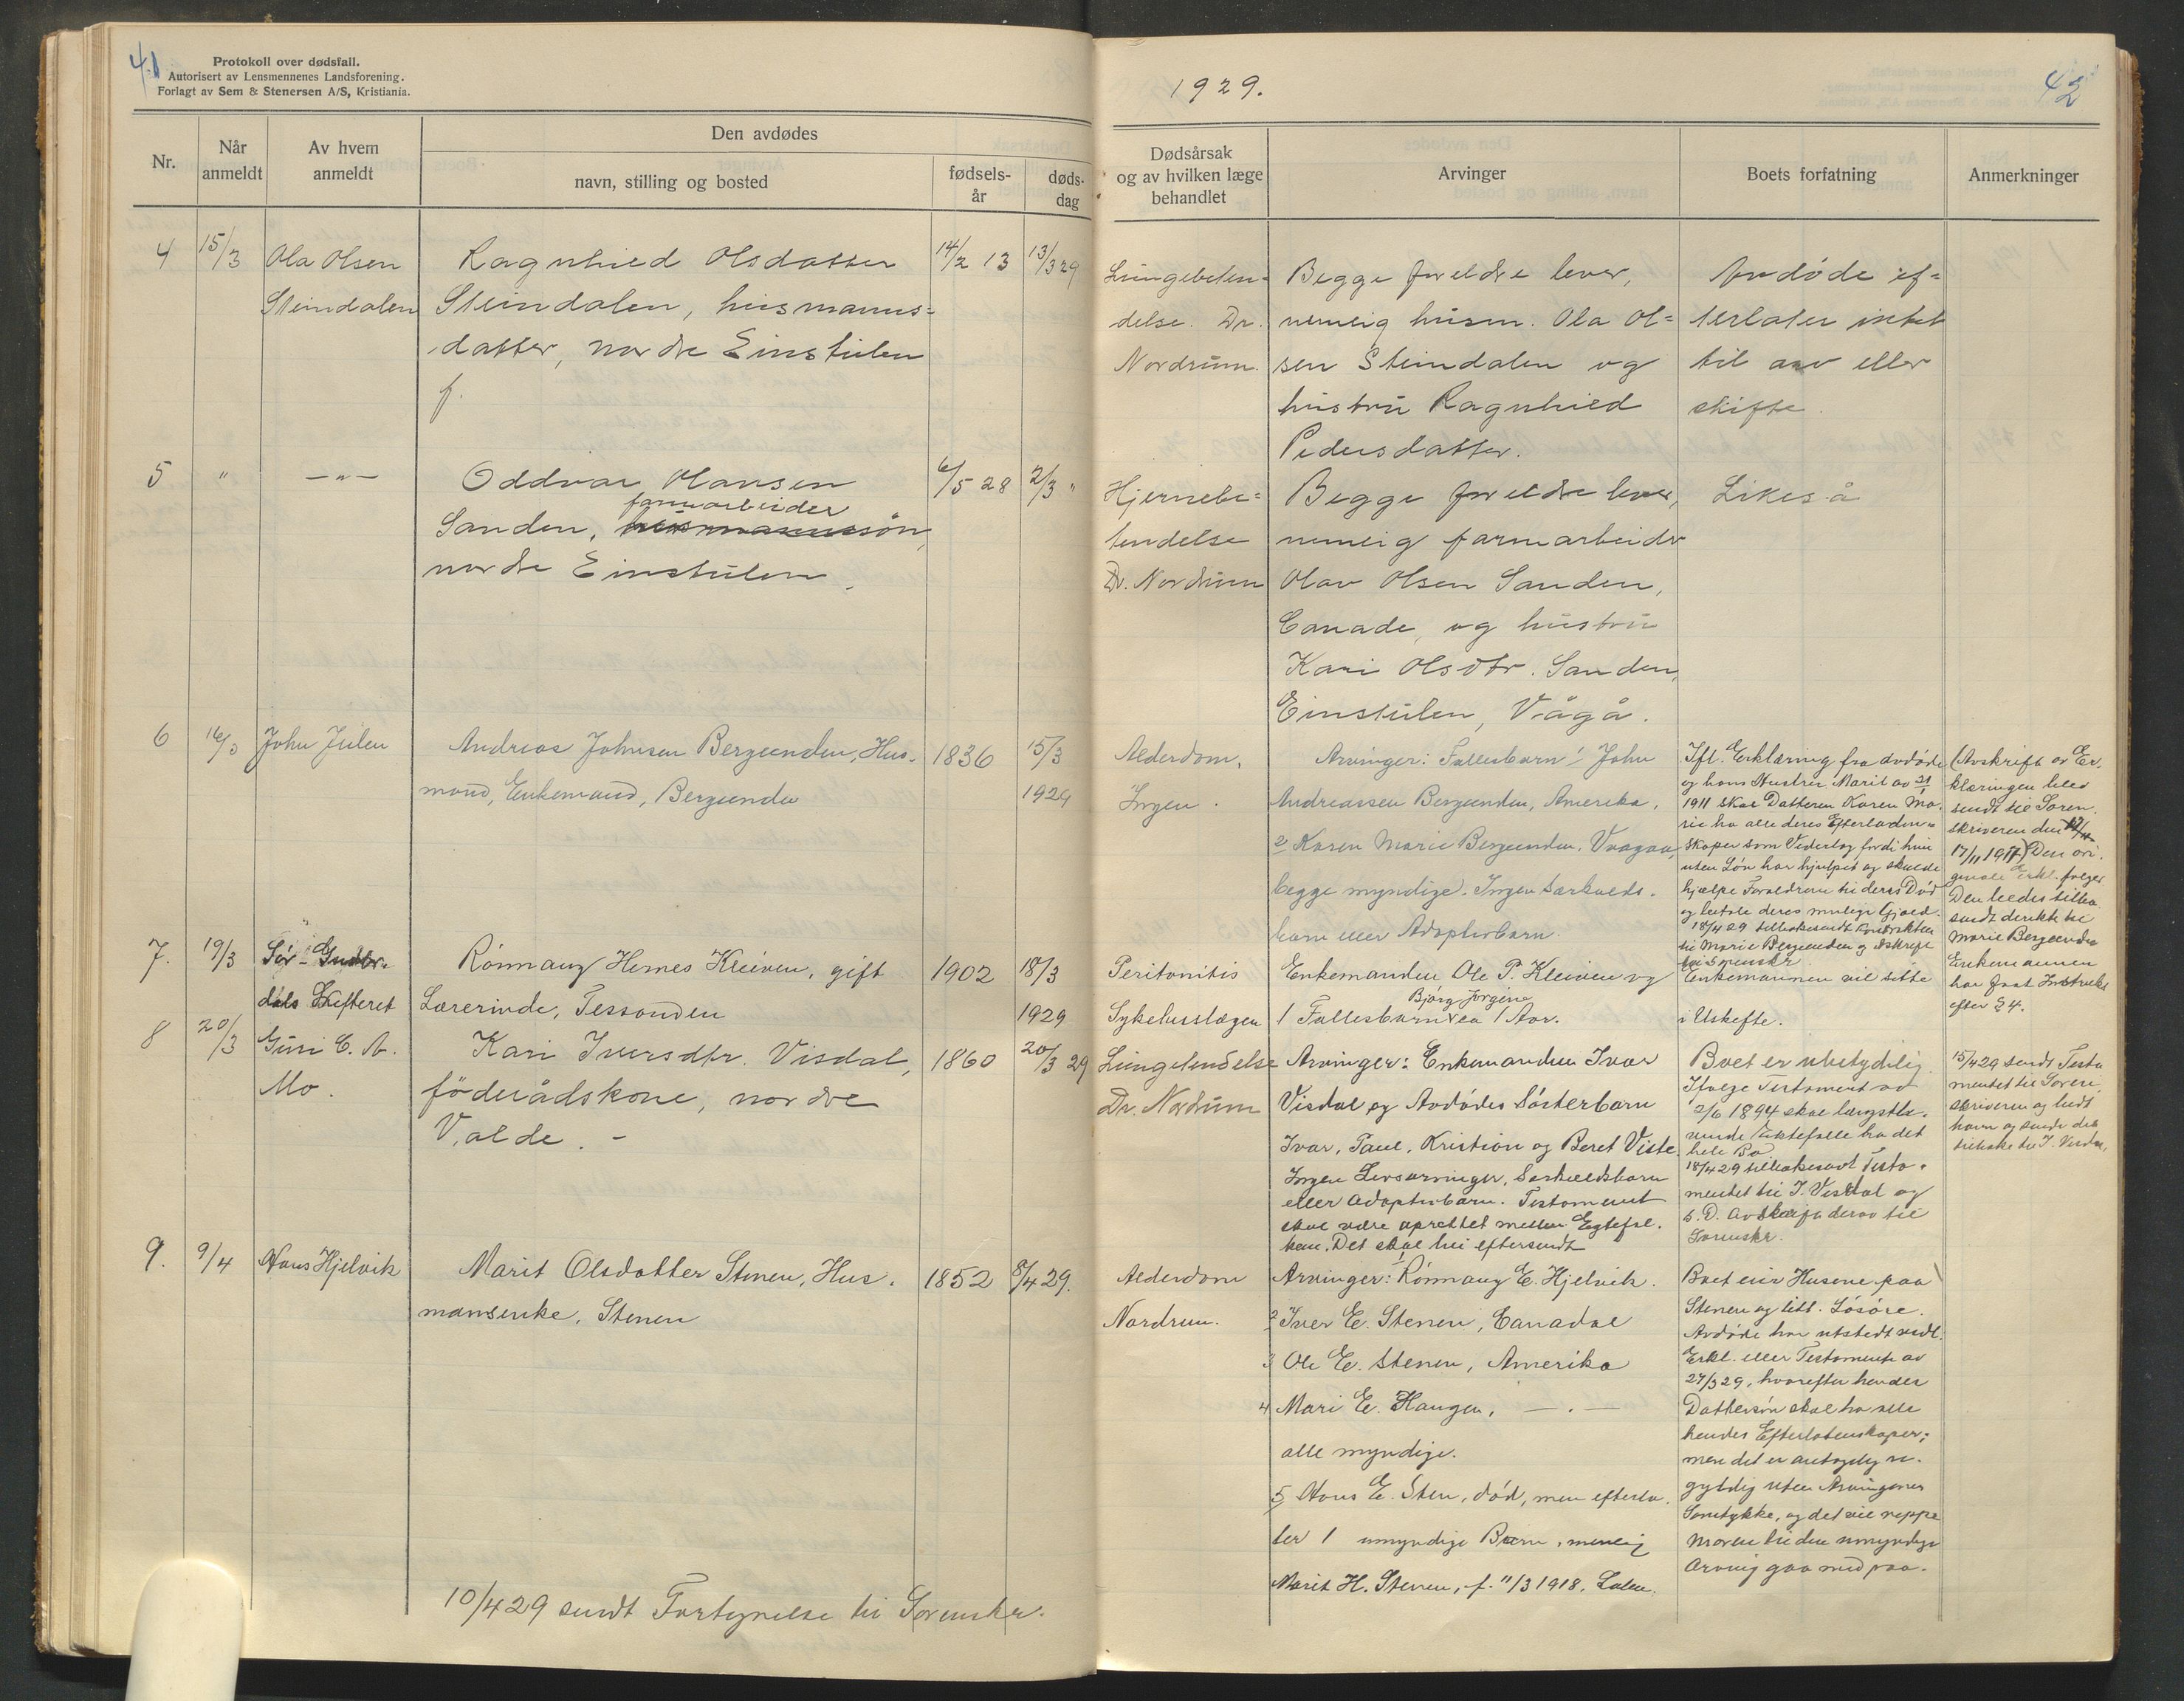 41
Protokoll over dødsfall.
Autorisert av Lensmennenes Landsforening.
Forlagt av Sem & Stenersen A/S, Kristiania.
Nr.
Når anmeldt
Av hvem anmeldt
Den avdødes
navn, stilling og bosted
fødsels-år
døds-dag
1929.
42
Dødsårsak
og av hvilken læge
behandlet
Arvinger
Boets forfatning
Anmerkninger
4
15/3
Ola Olsen
Steindalen
Ragnhild Olsdatter
Steindalen, husmanns=
datter, nordre Einstulen
f.
14/2 13
13/3 29
Lungebeten=
delse. Dr.
Nordrum.
Begge foreldre lever,
nemlig husm. Ola Ol=
sen Steindalen og
hustru Ragnhild
Pedersdatter.
Avdøde ef=
terlater intet
til arv eller
skifte.
5
"
— " —
Oddvar Olavsen
farmarbeider
Sanden, husmannssøn,
nordre Einstulen.
6/5 28
2/3 "
Hjernebe=
tendelse
Dr. Nordrum
Begge foreldre lever,
nemlig farmarbeider
Olav Olsen Sanden,
Canade, og hustru
Kari Olsdtr. Sanden,
Einstulen, Vågå.
Likeså
6
16/3
John Julen
Andreas Johnsen Bergeenden, Hus-
mand, Enkemand, Bergeenden
1836
15/3
1929
Alderdom.
Ingen.
Arvinger: Fællesbarn 1 John
Andreassen Bergeenden, Amerika,
2 Karen Marie Bergeenden, Vaagaa,
begge myndige. Ingen Særkulds-
barn eller Adoptivbarn.
Ifl. Erklæring fra avdøde
og hans Hustru Marit av
1911 skal Datteren Karen Ma-
rie ha alle deres Efterladen-
skaper som Vederlag fordi hun
uten Løn har hjulpet og skulde
hjælpe Forældrene til deres Død
og betale deres mulige Gjæld.
18/4 29 tilbakesendt
til Marie Bergeenden og Avskrift
til Sorenskr.
(Avskrift av Er-
klæringen blev
sendt til Soren-
skriveren den
17/11 1917) Den ori-
ginale Erkl. følger
Den bedes tilba-
sendt direkte til
Marie Bergeenden
7.
19/3
Sør-Gudbr.
dals Skifteret
Rønnaug Hernes Kleiven, gift
Lærerinde, Tessanden
1902
18/3
1929
Peritonitis
Sykehuslægen
Enkemanden Ole P. Kleiven og
Bjørg Jorgine
1 Fællesbarn ca 1 Aar.
Enkemannen vil sitte
i Uskifte.
Enkemannen
har faat Instruks
efter § 4.
8
20/3
Guri C. A.
Mo.
Kari Iversdtr. Visdal,
föderådskone, nordre
Valde. –
1860
20/3 29
Lungetendelse
Dr. Nordrum
Arvinger: Enkemanden Ivar
Visdal og Avdødes Søsterbarn
Ivar, Paul, Kristian og Beret Viste.
Ingen Livsarvinger, Særkuldsbarn
eller Adoptivbarn. Testament
skal være oprettet mellem Egtefol-
kene. Det skal bli eftersendt
Boet er ubetydelig
Ifølge Testament av
2/6 1894 skal længstle-
vende Ektefælle ha det
hele Bo
18/4 29 tilbakesendt Testa-
mentet til I. Visdal og
s. D. Avskrift derav til
Sorenskr.
15/4 29 sendt Testa
mentet til Soren-
skriveren og bedt
ham og sende det
tilbake til I. Visdal.
9.
9/4
Hans Hjelvik
Marit Olsdatter Stenen, Hus-
mansenke, Stenen
1852
8/4 29.
Alderdom
Nordrum.
Arvinger: 1 Rønnaug E. Hjelvik.
2 Iver E. Stenen, Canada
3 Ole E. Stenen, Amerika
4 Mari E. Haugen, — " —
alle myndige.
5 Hans E. Sten, død, men efterla-
ter 1 umyndige Barn, nemlig
Marit H. Stenen, f. 11/3 1918, Lalm.
Boet eier Husene paa
Stenen og litt Løsøre.
Avdøde har utstedt vedl.
Erkl. eller Testamente av
27/3 29, hvorefter hendes
Dattersøn skal ha alle
hendes Efterlatenskaper;
men det er antagelig u-
gyldig uten Arvingenes
Samtykke, og det vil neppe
Moren til den umyndige
Arving gaa med paa.
10/4 29 sendt Fortegnelse til Sorenskr.